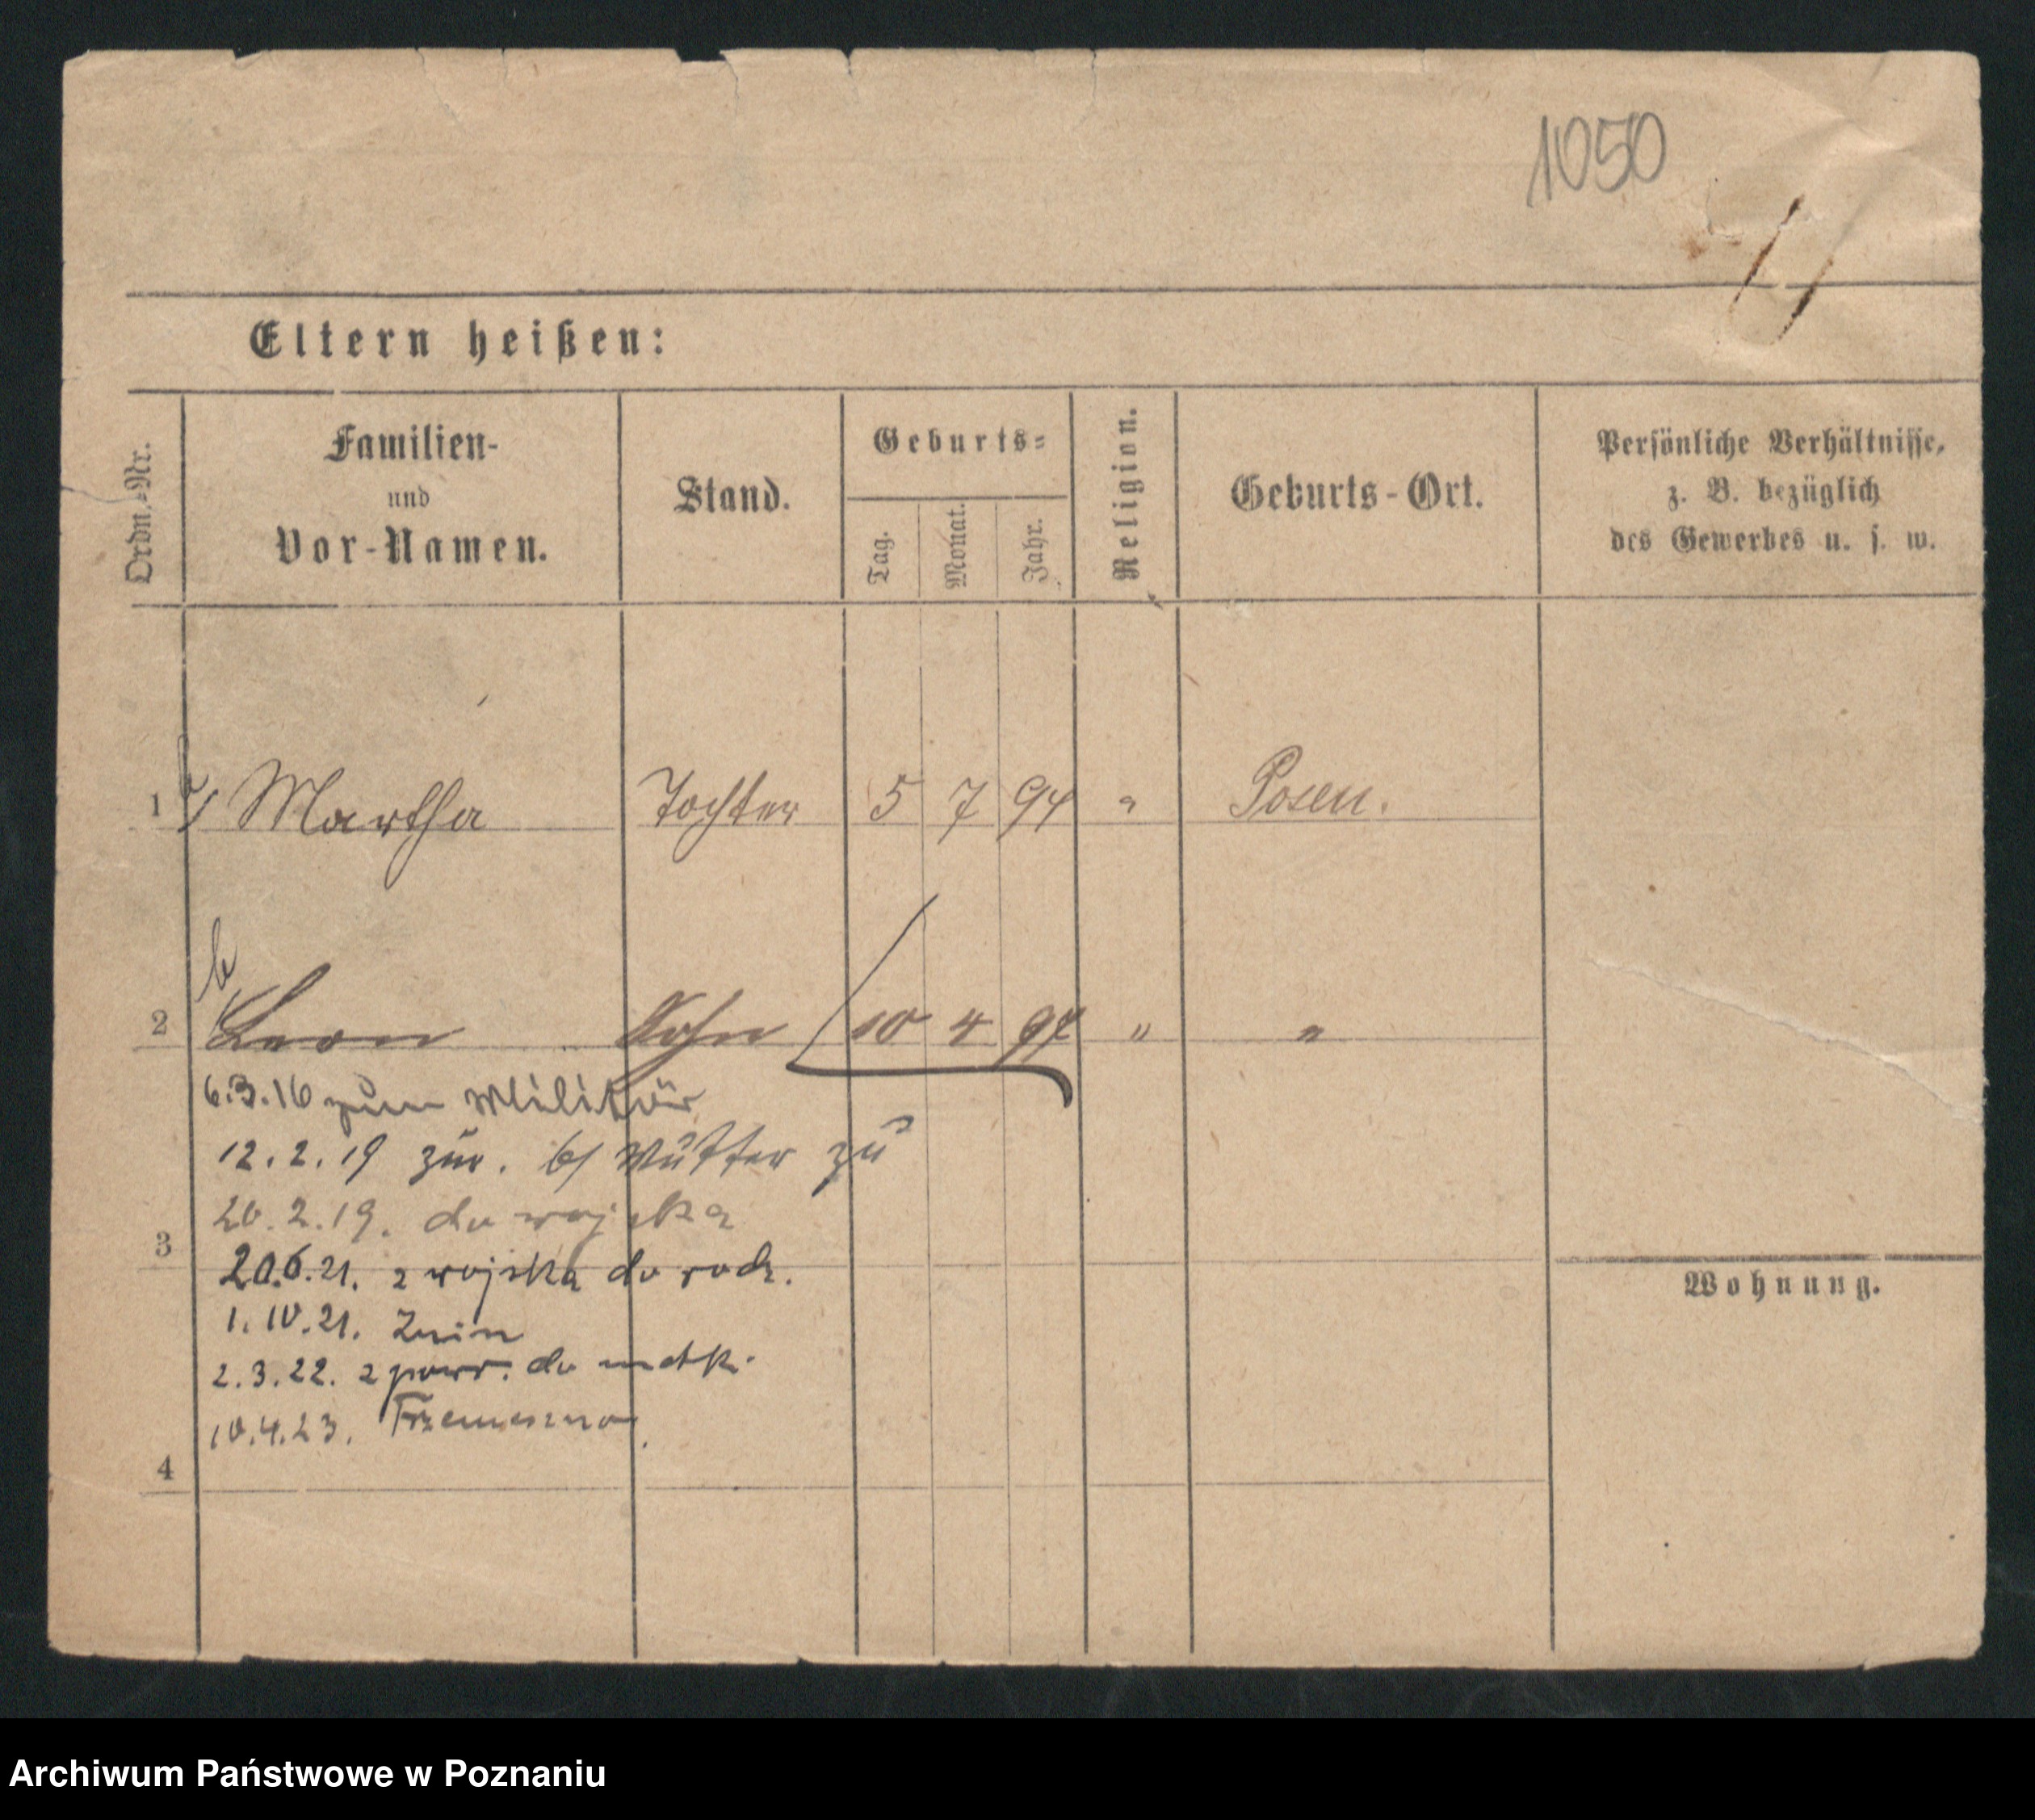 1050
Eltern heißen:
Ordn.-Nr.
Familien-
und
Vor-Namen.
Stand.
Geburts-
Tag.
Monat.
Jahr.
Religion.
Geburts-Ort.
Persönliche Verhältnisse,
z. B. bezüglich
des Gewerbes u. s. w.
1 Martha Tochter 5 7 94 " Posen.
b
2 Leon Sohn 10 4 97 " "
6.3.16 zum Militär
12.2.19 zur. b/ Mutter zu
20.2.19. do wojska
3
20.6.21. z wojska do rodz.
1.10.21. Znin
2.3.22. z powr. do matk.
10.4.23. Trzemeszno.
4
Wohnung.
Archiwum Państwowe w Poznaniu